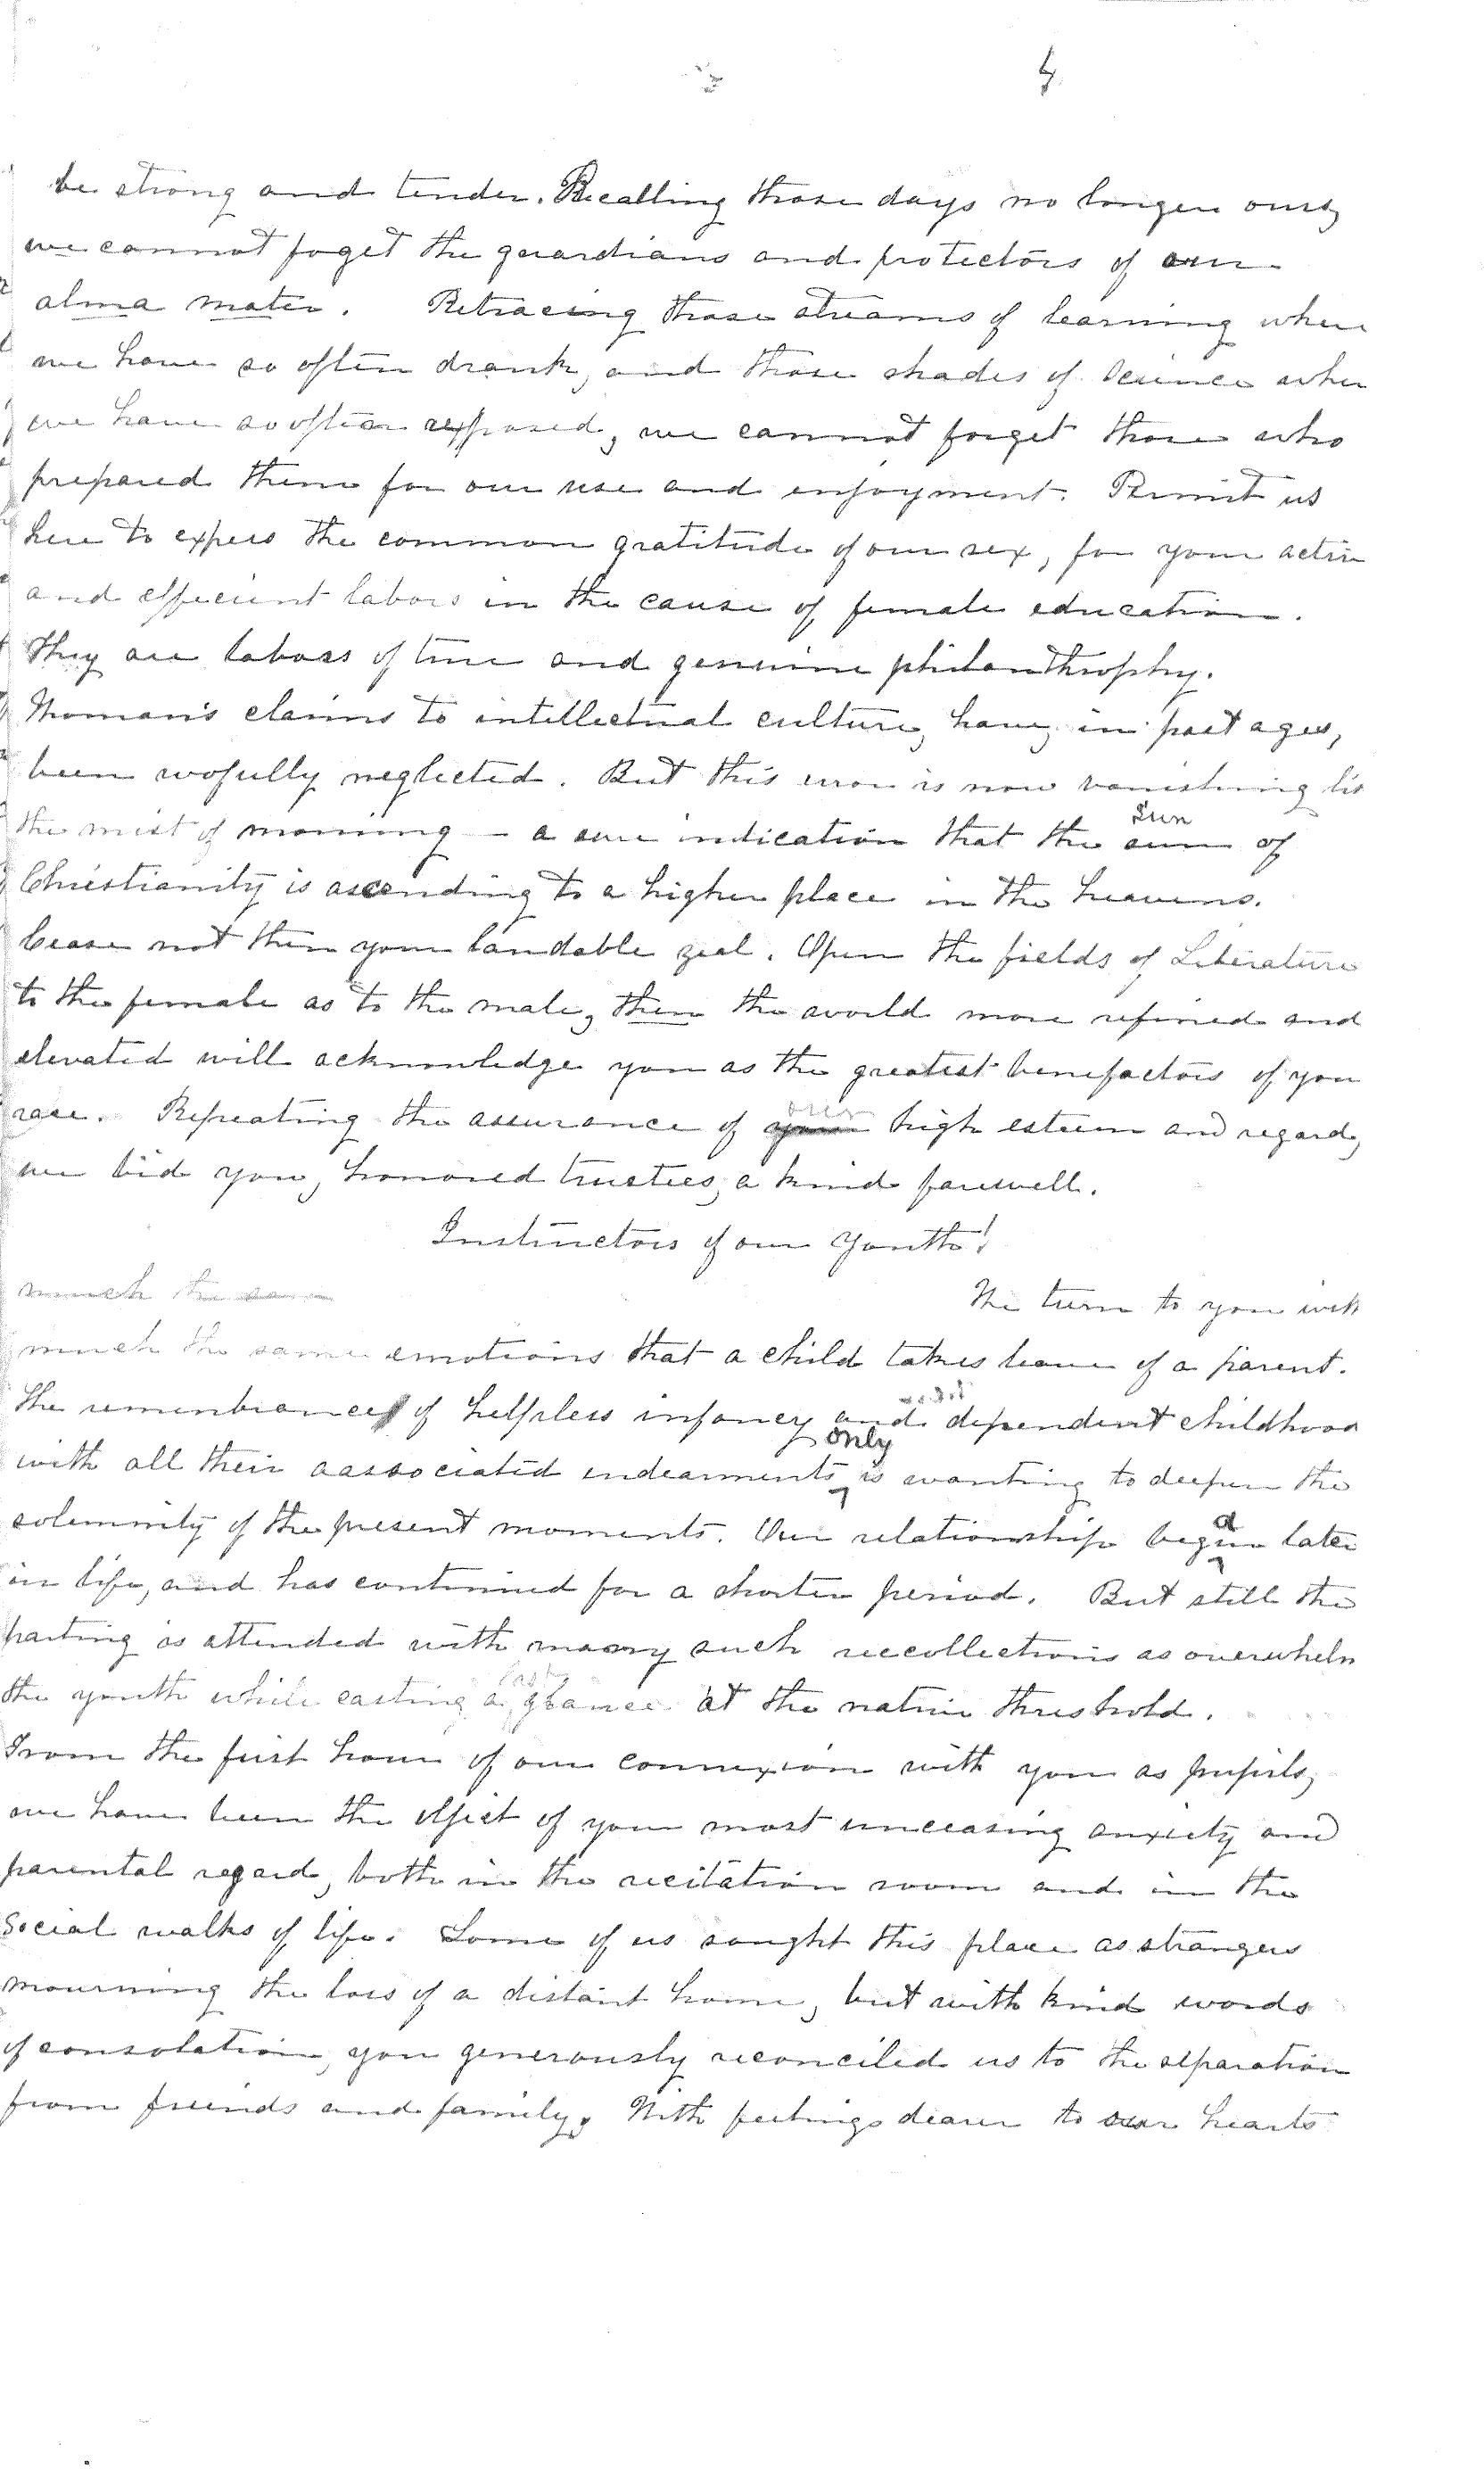 4
be strong and tender. Recalling those days no longer ours,
we cannot foget the guardians and protectors of our
alma mater. Retracing those streams of learning where
we have so often drank, and those shades of Science wher
we have so often reposed, we cannot forget those who
prepared them for our use and enjoyment. Permit us
here to expess the common gratitude of our sex, for your activ
and efficient labors in the cause of female education.
They are labors of true and genuine philanthrophy.
Woman's claims to intellectual culture, have, in past ages,
been wofully neglected. But this error is now vanishing lik
Sun
the mist of morning – a sure indication that the sun of
Christianity is ascending to a higher place in the heavens.
Cease not then your laudable zeal. Open the fields of Literature
to the female as to the male, then the world more refined and
elevated will acknowledge you as the greatest benefactors of you
our
race. Repeating the assurance of your high esteem and regard,
we bid you, honored trustees, a kind farewell.
Instructors of our Youth!
much the same We turn to you with
much the same emotions that a child takes leave of a parent.
The remembrance of helpless infancy and dependent childhood
only
with all their aassociated endearments, is wanting to deepen the
a
solemnity of the present moments. Our relationship begun later
in life, and has continued for a shorter period. But still the
parting is attended with many such recollections as overwhelm
last
the youth while casting a glance at the native threshold.
From the first hour of our connexion with you as pupils,
we have been the object of your most unceasing anxiety and
parental regard, both in the recitation room and in the
Social walks of life. Some of us sought this place as strangers
mourning the loss of a distant home, but with kind words
of consolation, you generously reconciled us to the separation
from friends and family. With feelings dearer to our hearts